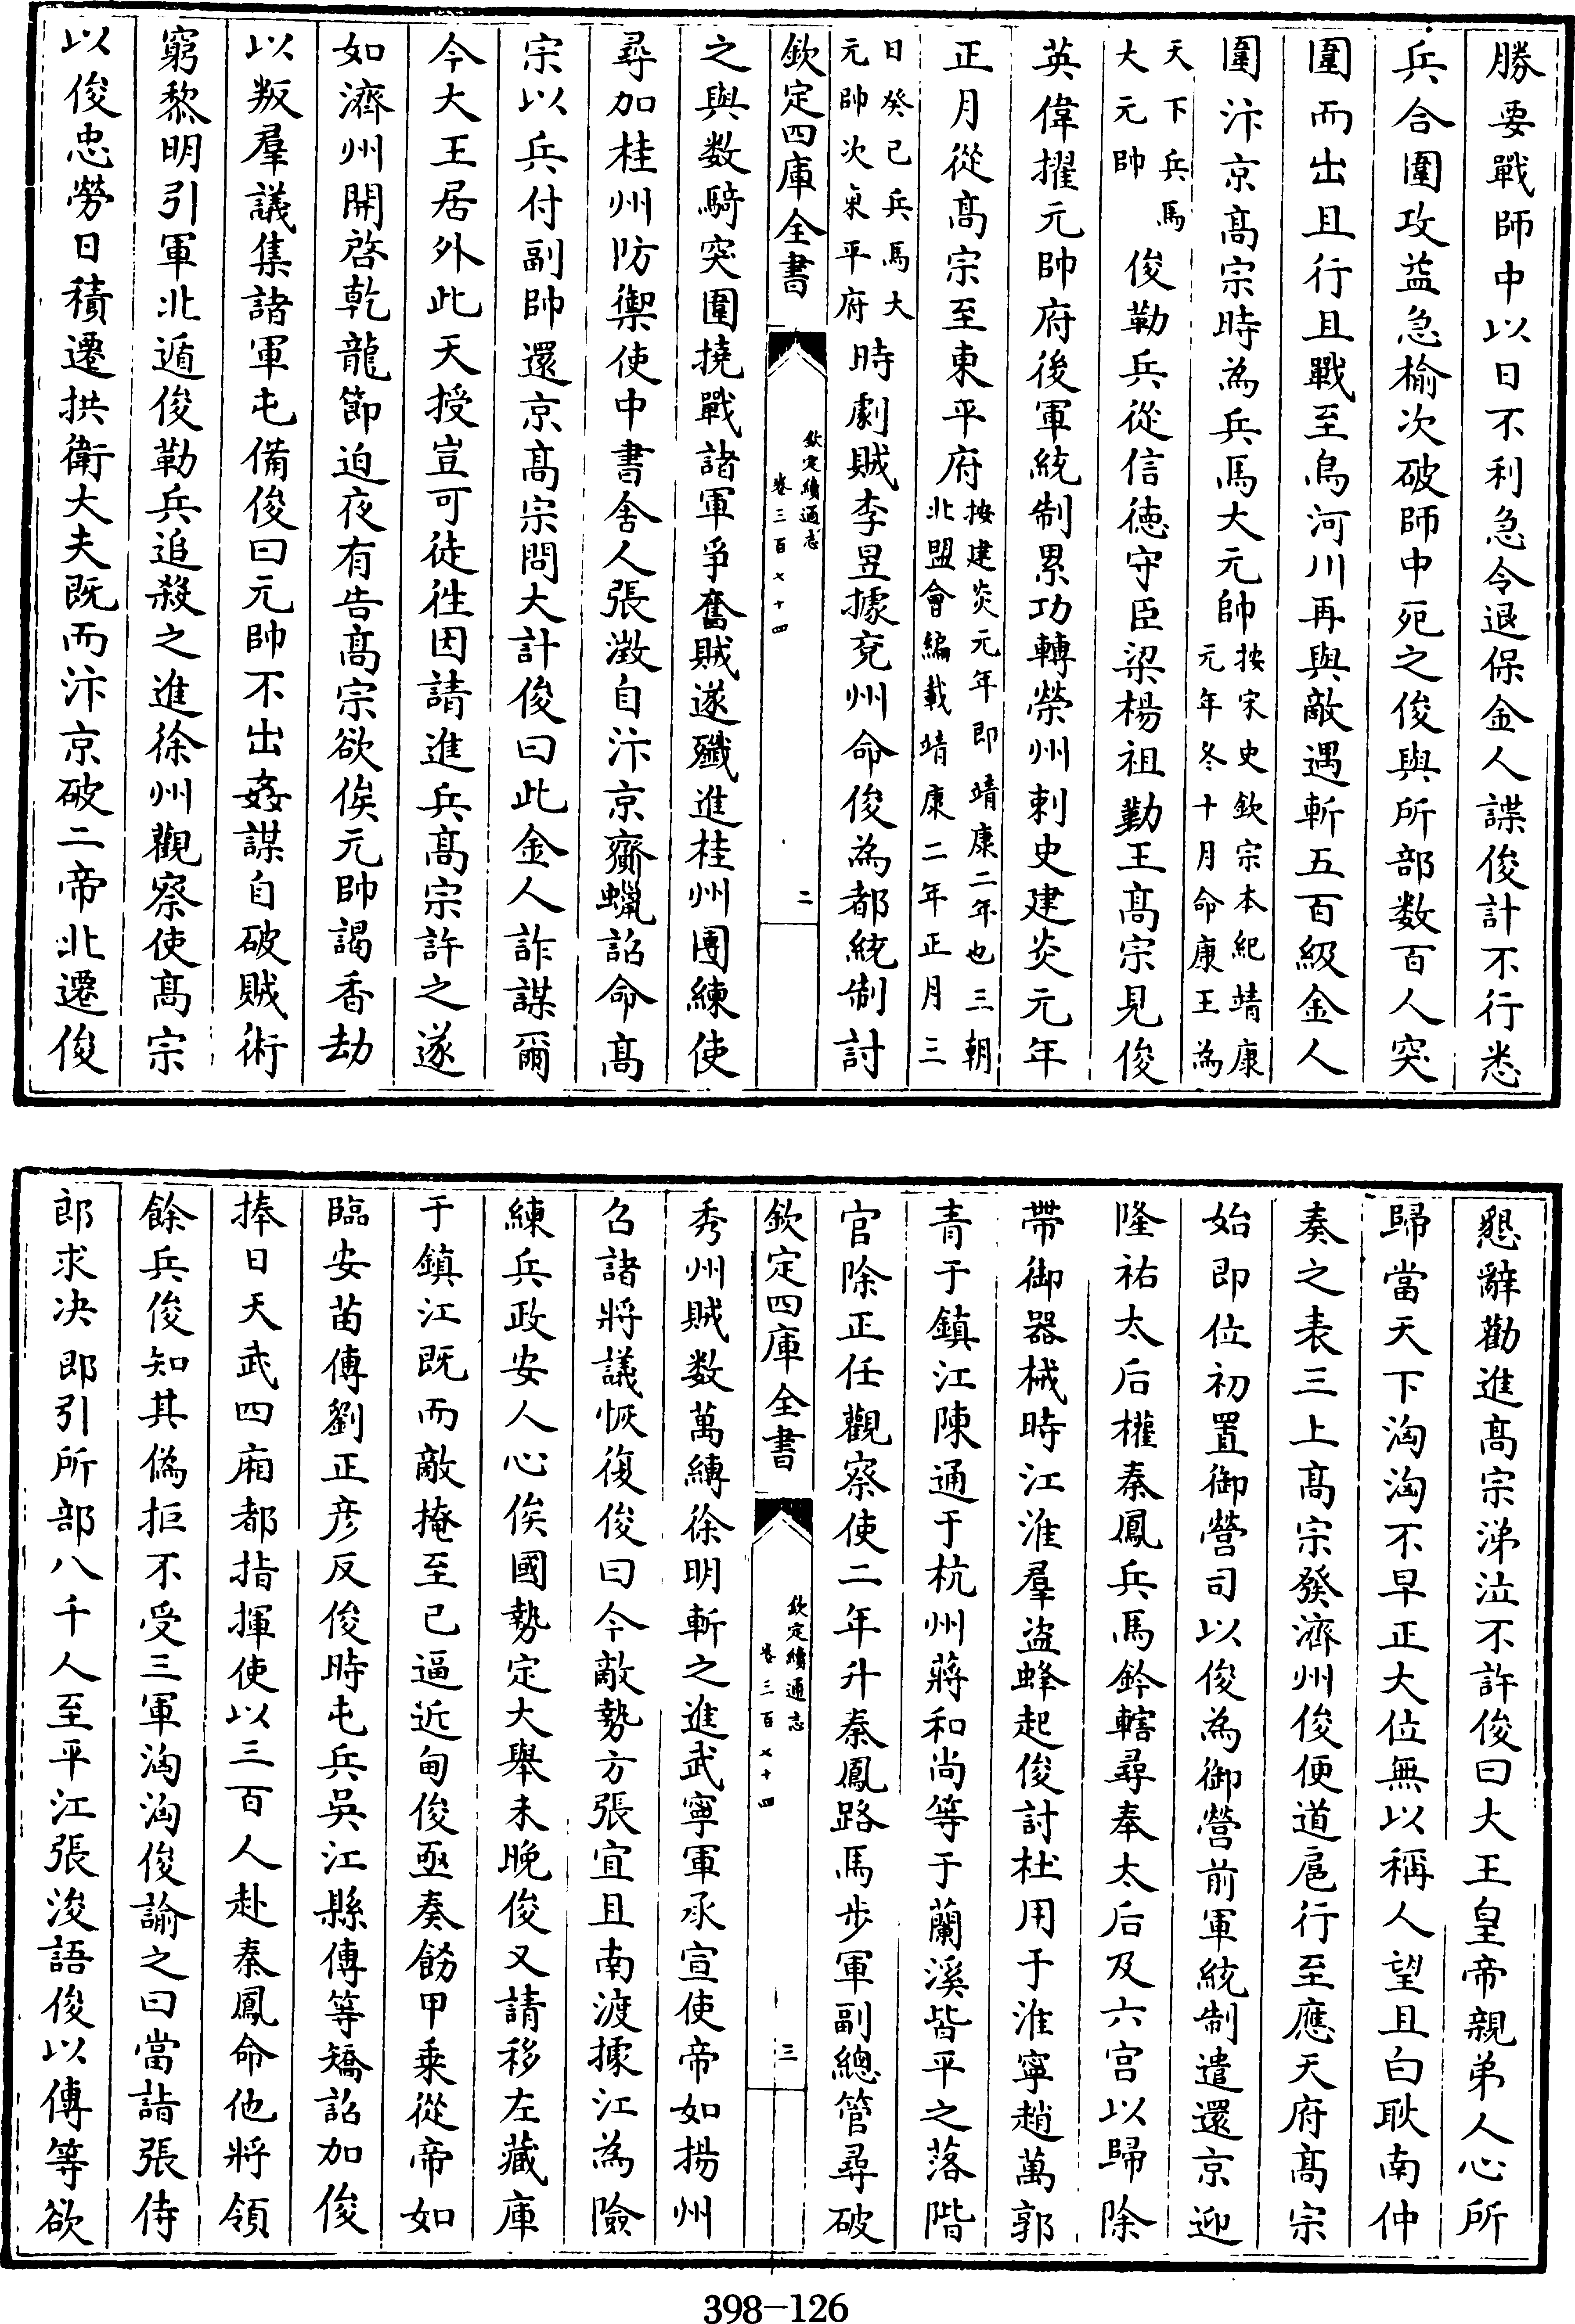 勝要戰師中以日不利急令退保金人諜俊計不行悉
兵合圍攻益急榆次破師中死之俊與所部数百人突
圍而出且行且戰至烏河川再與敵遇斬五百級金人
圍汴京髙宗時為兵馬大元帥按宋史欽宗本紀靖康元年冬十月命康王為
天下兵馬大元帥俊勒兵從信徳守臣梁楊祖勤王髙宗見俊
英偉擢元帥府後軍統制累功轉榮州刺史建炎元年
正月從髙宗至東平府按建炎元年即靖康二年也三朝北盟會編載靖康二年正月三
日癸已兵馬大元帥次東平府時劇賊李昱據兖州命俊為都統制討
欽定四庫全書
欽定續通志
卷三百七十四
二
之與数騎突圍撓戰諸軍爭奮賊遂殲進桂州團練使
尋加桂州防禦使中書舍人張澂自汴京齎蠟詔命髙
宗以兵付副帥還京髙宗問大計俊曰此金人詐謀爾
今大王居外此天授豈可徒徃因請進兵髙宗許之遂
如濟州開啓乾龍節迫夜有告髙宗欲俟元帥謁香劫
以叛羣議集諸軍屯備俊曰元帥不出姦謀自破賊術
窮黎明引軍北遁俊勒兵追殺之進徐州觀察使髙宗
以俊忠勞日積遷拱衛大夫既而汴京破二帝北遷俊
懇辭勸進髙宗涕泣不許俊曰大王皇帝親弟人心所
歸當天下洶洶不早正大位無以稱人望且白耿南仲
奏之表三上髙宗發濟州俊便道扈行至應天府髙宗
始即位初置御營司以俊為御營前軍統制遣還京迎
隆祐太后權秦鳳兵馬鈐轄尋奉太后及六宫以歸除
帶御器械時江淮羣盜蜂起俊討杜用于淮寧趙萬郭
青于鎮江陳通于杭州蔣和尚等于蘭溪皆平之落階
官除正任觀察使二年升秦鳳路馬步軍副總管尋破
欽定四庫全書
欽定續通志
卷三百七十四
三
秀州賊数萬縳徐明斬之進武寧軍承宣使帝如揚州
召諸將議恢復俊曰今敵勢方張宜且南渡據江為險
練兵政安人心俟國勢定大舉未晚俊又請移左藏庫
于鎮江既而敵掩至已逼近甸俊亟奏飭甲乗從帝如
臨安苗傅劉正彦反俊時屯兵吳江縣傅等矯詔加俊
捧日天武四廂都指揮使以三百人赴秦鳳命他將領
餘兵俊知其偽拒不受三軍洶洶俊諭之曰當詣張侍
郎求决即引所部八千人至平江張浚語俊以傅等欲
398-126